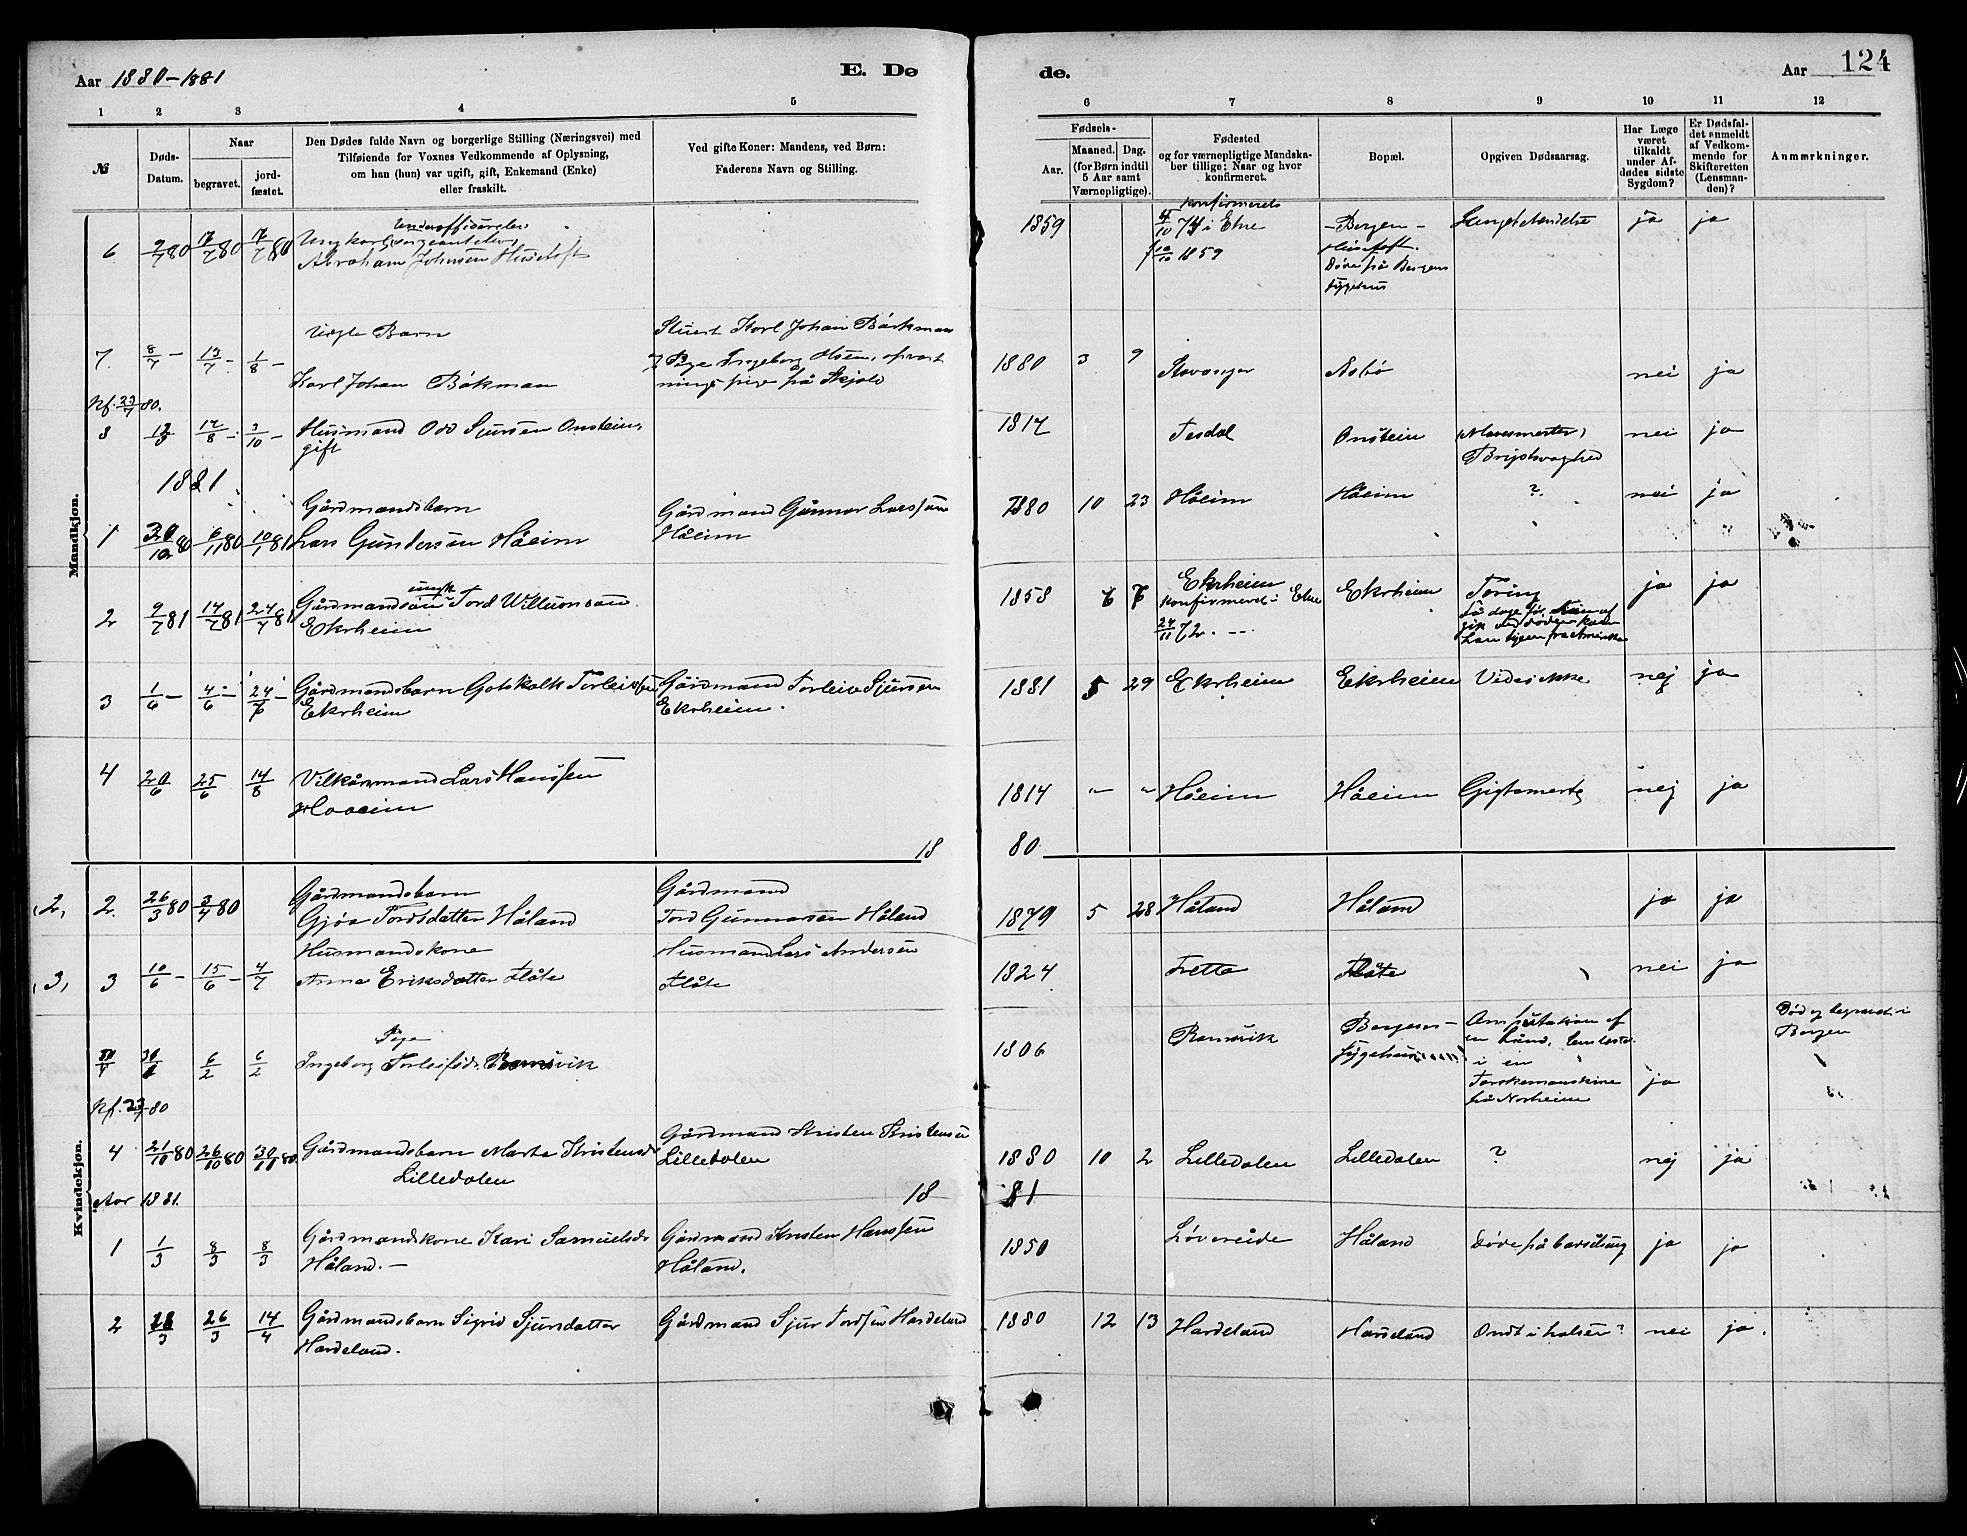 Aar 1880-1881
E. Dø
de.
Aar
124
1 2 3 4 5 6 7 8 9 10 11 12
№
Døds-
Datum.
Naar
begravet.
jord-
fæstet.
Den Dødes fulde Navn og borgerlige Stilling (Næringsvei) med
Tilføiende for Voxnes Vedkommende af Oplysning,
om han (hun) var ugift, gift, Enkemand (Enke)
eller fraskilt.
Ved gifte Koner: Mandens, ved Børn:
Faderens Navn og Stilling.
Fødsels-
Aar.
Maaned. Dag.
(for Børn indtil
5 Aar samt
Værnepligtige).
Fødested
og for værnepligtige Mandska-
ber tillige: Naar og hvor
konfirmeret.
Bopæl.
Opgiven Dødsaarsag.
Har Læge
været
tilkaldt
under Af-
dødes sidste
Sygdom?
Er Dødsfal-
det anmeldt
af Vedkom-
mende for
Skifteretten
(Lensman-
den)?
Anmærkninger.
Mandkjøn.
Underofficerelev
6 9/7 80 17/7 80 17/7 80 Ungkarl
Abraham Johnsen Hustoft
1859
konfirmeret
4/10 74 i Etne
10/10 1859
Bergen
Hustoft.
Døde på Bergens
Sygehus
ja ja
7. 8/7 - 13/7 - 1/8 -
Uægte Barn
Karl Johan Bökman
Stuert Karl Johan Börkman
Pige Ingeborg
ningspige på Skjold
1880 3 9 Stavanger nei ja
Kf. 23/7 80.
8 12/8 17/8 - 3/10 - Husmand Odd Sjursen Onstein,
gift
1817 Tesdal Onstein
Brystsvaghed
nei ja
1881
1 30/10 80 6/11 80 10/1 81
Gårdmandsbarn
Lars Gundersen Håeim
Gårdmand Gunnar Larssøn
Håeim
1880 10 23 Håeim Håeim ? nei ja
2 9/7 81 14/7 81 24/7 81
Gårdmandsøn ungk Tord
Ekrheim
1858 6 7 Ekrheim
konfirmeret i Etne
24/11 72.
Ekrheim Tæring ja ja
3 1/6 - 4/6 - 24/7 - Gårdmandsbarn Gotskalk Torleivsen
Ekrheim
Gårdmand Torleiv Sjursen
Ekrheim.
1881 5 29 Ekrheim Ekrheim Vides ikke nej ja
4 20/6 25/6 14/8 Vilkårsmand Lars Hanssen
Haaeim
1814 " " Håeim Håeim Gigtsmerte nej ja
18 80
Kvindekjøn.
(2) 2. 26/3 80 3/4 80
Gårdmandsbarn
Gjøa Tordsdatter Håland
Gårdmand
Tord Gunnarsen Håland
1879 5 28 Håland Håland ja ja
(3) 3 10/6 - 15/6 - 4/7
Husmandskone
Anna Eriksdatter Flåte
Husmand Lars Andersen
Flåte
1824 Tretta Flåte nei ja
6/2 6/2
Pige
Ingeborg Torleifsd. Ramsvik
1806 Ramsvik Bergens
Sygehus
Amputation af
en hånd,
i en
Tærskemaskine
på Norheim
ja
Død og begravet i
Bergen
Kf. 23/7 80
4 21/10 80 26/10 80 30/11 80 Gårdmandsbarn Marta Kristensd.
Lilledalen
Gårdmand Kristen Kristensen
Lilledalen
1880 10 2 Lilledalen Lilledalen ? nej ja
Aar 1881.
18 81
1 1/3 8/3 8/3 Gårdmandskone Kari Samuelsd.
Håland.-
Gårdmand Kristen Hanssen
Håland.
1850 Løvereide Håland Døde på barselseng ja ja
2 26/3 14/4 Gårdmandsbarn Sigrid Sjursdatter
Hardeland.
Gårdmand Sjur Tordsen Hardeland
1880 12 13 Hardeland Hardeland Ondt i halsen? nei ja.